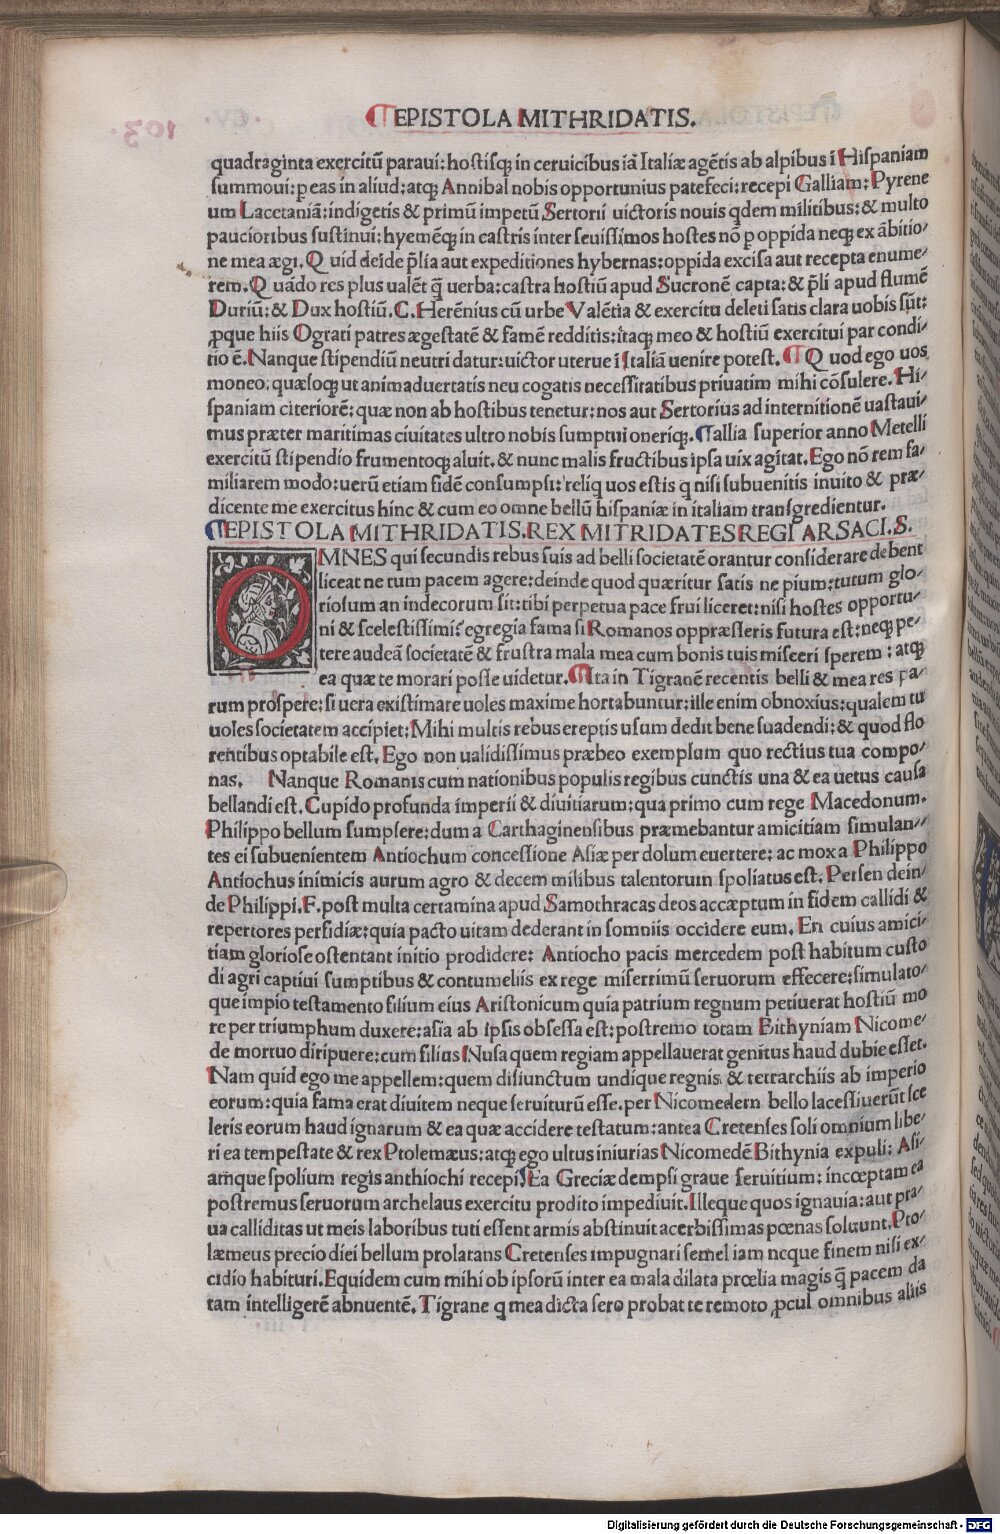 ¶EPISTOLA MITHRIDATIS.
quadraginta exercitū paraui: hostisq; in ceruicibus iā Italiæ agētis ab alpibus ī Hispaniam
summoui: p eas in aliud: atq; Annibal nobis opportunius patefeci: recepi Galliam: Pyrene
um Lacetaniā: indigetis & primū impetū Sertorii uictoris nouis qdem militibus: & multo
paucioribus sustinui: hyemēq; in castris inter seuissimos hostes nō p oppida neq; ex ābitio/
ne mea ægi. Q uid deide p̄lia aut expeditiones hybernas: oppida excisa aut recepta enume/
rem. Q uādo res plus ualēt q̄ uerba: castra hostiū apud Sucronē capta: & p̄li apud flumē
Duriū: & Dux hostiū. C. Herēnius cū urbe Valētia & exercitu deleti satis clara uobis sūt:
ꝓque hiis O grati patres ægestatē & famē redditis: itaq; meo & hostiū exercitui par condi/
tio ē. Nanque stipendiū neutri datur: uictor uterue ī Italiā uenire potest. ¶Q uod ego uos
moneo: quæsoq; ut animaduertatis neu cogatis necessitatibus priuatim mihi cōsulere. Hi/
spaniam citeriorē: quæ non ab hostibus tenetur: nos aut Sertorius ad internitionē uastaui/
mus præter maritimas ciuitates ultro nobis sumptui oneriq;. Gallia superior anno Metelli
exercitū stipendio frumentoq; aluit. & nunc malis fructibus ipsa uix agitat. Ego nō rem fa/
miliarem modo: uerū etiam fidē consumpsi: reliq uos estis q nisi subuenitis inuito & præ/
dicente me exercitus hinc & cum eo omne bellū hispaniæ in italiam transgredientur.
¶EPISTOLA MITHRIDATIS. REX MITRIDATES REGI ARSACI. S.
OMNES qui secundis rebus suis ad belli societatē orantur considerare debent
liceat ne tum pacem agere: deinde quod quæritur satis ne pium: tutum glo/
riosum an indecorum sit: tibi perpetua pace frui liceret: nisi hostes opportu/
ni & scelestissimi: egregia fama si Romanos oppræsseris futura est: neq; pe/
tere audeā societatē & frustra mala mea cum bonis tuis misceri sperem: atq;
ea quæ te morari posse uidetur. Ita in Tigranē recentis belli & mea res pa/
rum prospere: si uera existimare uoles maxime hortabuntur: ille enim obnoxius: qualem tu
uoles societatem accipiet: Mihi multis rebus ereptis usum dedit bene suadendi: & quod flo
rentibus optabile est. Ego non ualidissimus præbeo exemplum quo rectius tua compo/
nas. Nanque Romanis cum nationibus populis regibus cunctis una & ea uetus causa
bellandi est. Cupido profunda imperii & diuitiarum: qua primo cum rege Macedonum.
Philippo bellum sumpsere: dum a Carthaginensibus præmebantur amicitiam simulan//
tes ei subuenientem Antiochum concessione Asiæ per dolum euertere: ac mox a Philippo
Antiochus inimicis aurum agro & decem milibus talentorum spoliatus est. Persen dein/
de Philippi. F. post multa certamina apud Samothracas deos accæptum in fidem callidi &
repertores perfidiæ: quia pacto uitam dederant in somniis occidere eum. En cuius amici/
tiam gloriose ostentant initio prodidere: Antiocho pacis mercedem post habitum custo
di agri captiui sumptibus & contumeliis ex rege miserrimū seruorum effecere: simulato/
que impio testamento filium eius Aristonicum quia patrium regnum petiuerat hostiū mo
re per triumphum duxere: asia ab ipsis obsessa est: postremo totam Bithyniam Nicome/
de mortuo diripuere: cum filius Nusa quem regiam appellauerat genitus haud dubie esset.
Nam quid ego me appellem: quem disiunctum undique regnis & tetrarchiis ab imperio
eorum: quia fama erat diuitem neque seruiturū esse. per Nicomedem bello lacessiuerūt sce
leris eorum haud ignarum & ea quæ accidere testatum: antea Cretenses soli omnium libe/
ri ea tempestate & rex Ptolemæus: atq; ego ultus iniurias Nicomedē Bithynia expuli: Asi/
amque spolium regis anthiochi recepi. Ea Greciæ dempsi graue seruitium: incœptam ea
postremus seruorum archelaus exercitu prodito impediuit. Illeque quos ignauia: aut pra/
ua calliditas ut meis laboribus tuti essent armis abstinuit acerbissimas pœnas soluunt. Pto/
læmeus precio diei bellum prolatans Cretenses impugnari semel iam neque finem nisi ex/
cidio habituri. Equidem cum mihi ob ipsorū inter ea mala dilata prœlia magis q̄ pacem da
tam intelligerē abnuentē. Tigrane q mea dicta sero probat te remoto ꝓcul omnibus aliis
Digitalisierung gefördert durch die Deutsche Forschungsgemeinschaft - DFG